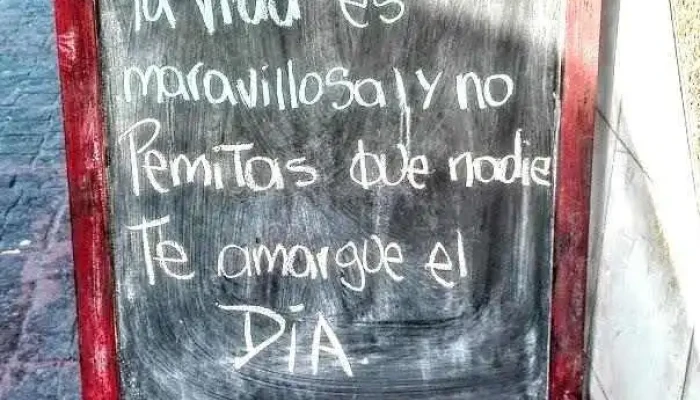 la vida es
maravillosa! y no
Pemitas que nadie
Te amargue el
DiA.